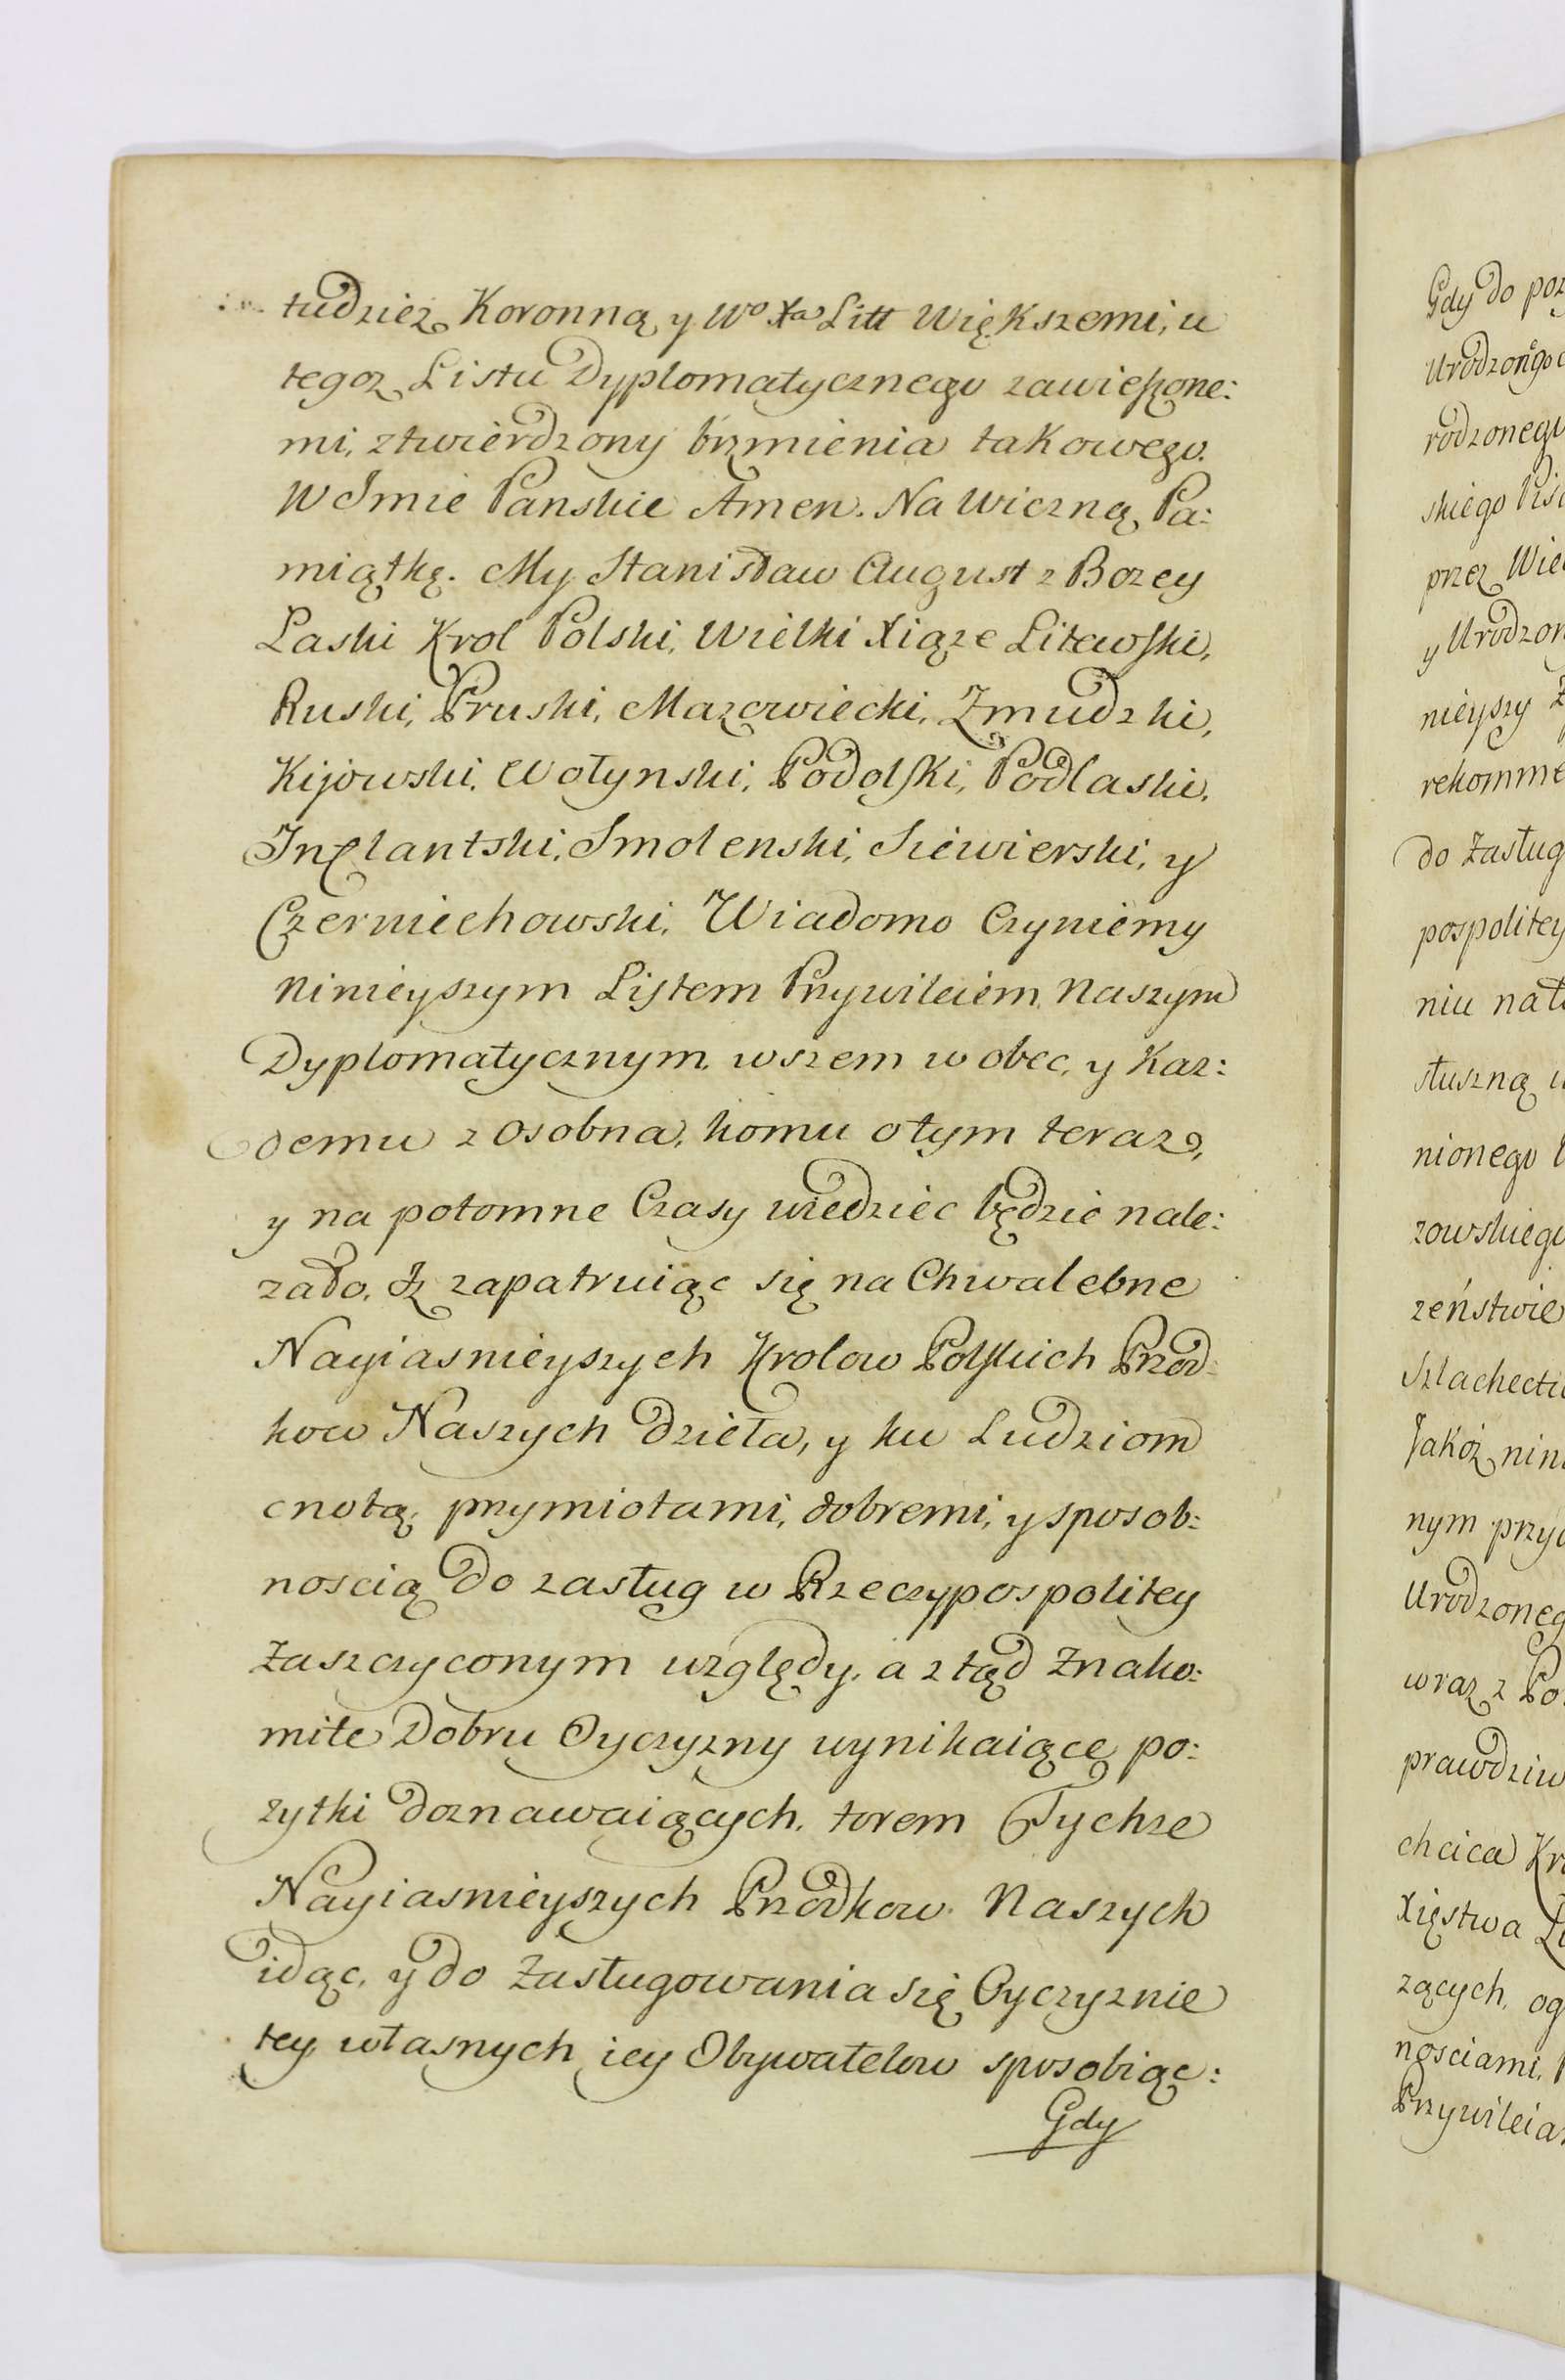 tudziez Koronną y Wo Xa Litt Większemi, u
tegoz Listu Dyplomatycznego zawieszone:
mi, ztwierdzony brzmienia takowego.
W Jmie Panskie Amen. Na Wieczną Pa:
miątkę. My Stanisław August z Bozey
Łaski Krol Polski, Wielki Xiąze Litewski,
Ruski, Pruski, Mazowiecki, Zmudzki,
Kijowski, Wołynski, Podolski, Podlaski,
Inflantski, Smolenski, Siewierski, y
Czerniechowski, Wiadomo Czyniemy
Ninieyszym Listem Przywileiem Naszym
Dyplomatycznym, wszem w obec, y Kaz:
demu z Osobna, komu otym teraz,
y na potomne Czasy wiedziec będzie nale:
zało, Iz zapatruiąc się na Chwalebne
Nayiasnieyszych Krolow Polskich Przod:
kow Naszych Dzieła, y ku Ludziom
cnotą, przymiotami, dobremi, y sposob:
noscią do zasług w Rzeczypospolitey
Zaszczyconym względy, a ztąd Znako:
mite Dobru Oyczyzny wynikaiące po:
zytki doznawaiących, torem Tychze
Nayiasnieyszych Przodkow Naszych
idąc, y do Zasługowania się Oyczyznie
tey własnych iey Obywatelow sposobiąc:
Gdy
Gdy do
do Zasług
pospolitey
słuszną
nionego
zeństwie
nym
wraz z
Xięstwa
zących,
nosciami,